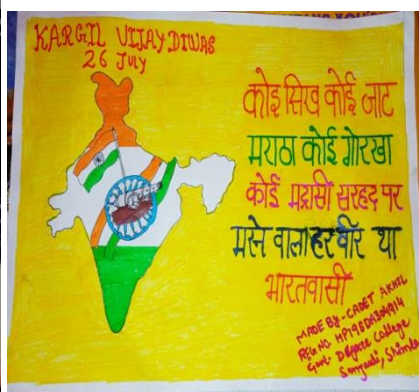 KARGIL VIJAY DIWAS
26 JULY
कोइ सिख कोई जाट
मराठा कोई गोरखा
कोई मद्रासी सरहद पर
मरने वाला हर वीर था
भारतवासी
MADE BY- CADET AKHIL
REG NO. HP19SDA304914
Govt. Degree College
Sanjauli, Shimla